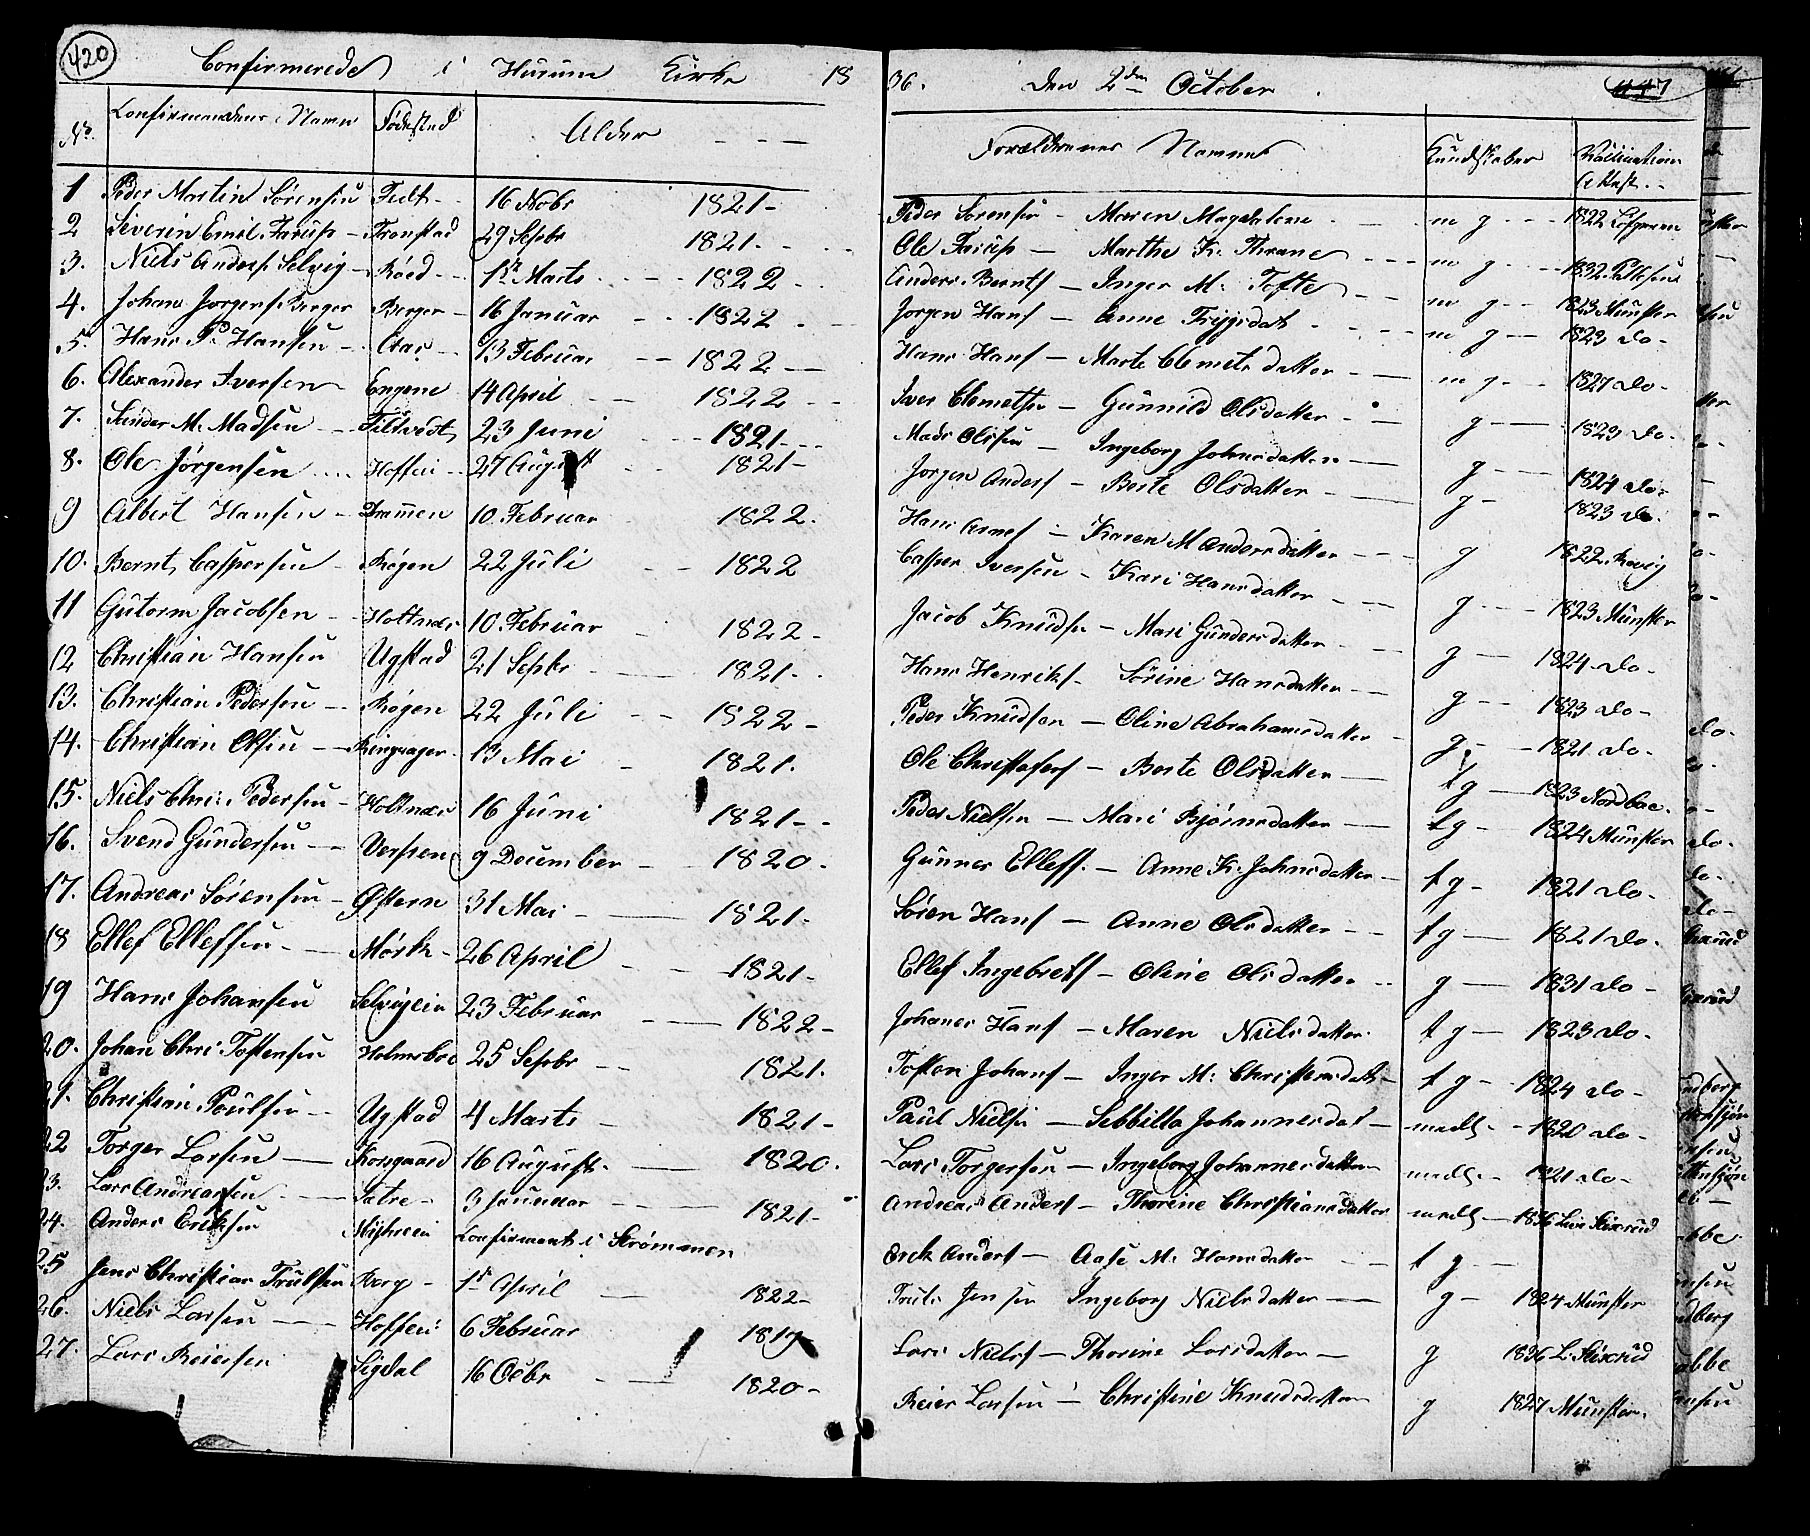 420
Confirmerede i Hurum Kirke 1836. den 2den October
447
No. Confirmandens Navne Fødested Alder Forældrenes Navne Kundskaber Vaccination Attest
1 Peder Martin Sørensen Fildt 16 Nobr 1821 Peder Sørensen - Maren Magdalena m g 1822
2 Severin Emil Farup - Tronstad 29 Sepbr 1821 Ole Farup - Marthe K. Thrane m g 1832
3. Niels Anders. Selvig - Röed 1ste Marts 1822 Anders Bernts - Inger M. Tofte m g 1823 Münster
4. Johan Jørgens. Berger Berger 16 Januar 1822 Jørgen Hans - Anne Trygsdat m g 1823 do
5. Hans P. Hansen 13 Februar 1822 Hans Hans - Marte Clemetsdatter m g 1827 do
6. Alexander Iversen Engene 14 April 1822 Iver Clemetsen - Gunnild Olsdatter g 1823 do
7. Gunder M. Madsen Filtvedt 23 Juni 1821 Mads Olsen - Ingeborg Johnsdatter g 1824 do
8. Ole Jørgensen 27 August 1821 Jørgen Anders - Berte Olsdatter g 1823 do
9 Albert Hansen - Drammen 10. Februar 1822. Hans Arnes - Karen M Andersdatter g 1822
10. Bernt Caspersen - Røgen 22 Juli 1822 Casper Iversen - Kari Hansdatter g 1823 Münster
11 Gutorm Jacobsen - Holtnæs 10 Februar 1822 Jacob Knudsen - Mari Gundersdatter g 1824 do
12 Christian Hansen Ugstad 21 Sepbr 1821. Hans Henriks - Sørine Hansdatter g 1823 do
13. Christian Pedersen - Røgen 22 Juli 1822 Peder Knudsen - Oline Abrahamsdatter g 1821 do
14. Christian Olsen - Ringsager 13 Mai 1821. Ole Christofers - Berte Olsdatter tg 1823 Nordbac
15. Niels Chr: Pedersen - Holtnæs 16 Juni 1821 Peder Nielsen - Mari Bjørnsdatter tg 1824 Münster
16. Svend Gundersen Verpen 9 December 1820. Gunner Ellefs. - Anne K. Johnsdatter tg 1821 do
17. Andreas Sørensen - Østern 31 Mai 1821. Søren Hans - Anne Olsdatter tg 1821 do
18 Ellef Ellefsen Mørk 26 April 1821 Ellef Ingebrets - Oline Olsdatter g 1831 do
19 Hans Johansen Selvigein 23 Februar 1822 Johanes Hans - Maren Nielsdatter tg 1823 do
20. Johan Chri Toftensen Holmsboe 25 Sepbr 1821. Toften Johans - Inger M: Christensdatt tg 1824 do
21. Christian Poulsen Ugstad 4 Marts 1821 Paul Nielsen - Sebbilla Johannesdat madl. 1820 do
22 Torger Larsen Korsgaard 16 August 1820. Lars Torgersen - Ingeborg Johannesdatter madl 1821 do
23. Lars Andreasen Satre 3 Januar 1821 Andreas Anders - Thorine Christiansdatter madl 1836 Lars Sixrud
24. Anders Eriksen Confirmant i Strømmen Erik Anders - Aase M: Hansdatter t g
25 Jens Christian Trulsen Berg 1ste April 1822 Truls Jensen Ingeborg Nielsdatter g 1824 Münster
26. Niels Larsen 6 Februar 1819 Lars Niels - Thorine Larsdatter g 1836 L: Sixrud
27. Lars Reiersen Sigdal 16 Ocbr 1820 Reier Larsen - Christine Knudsdatter g 1827 Münster.